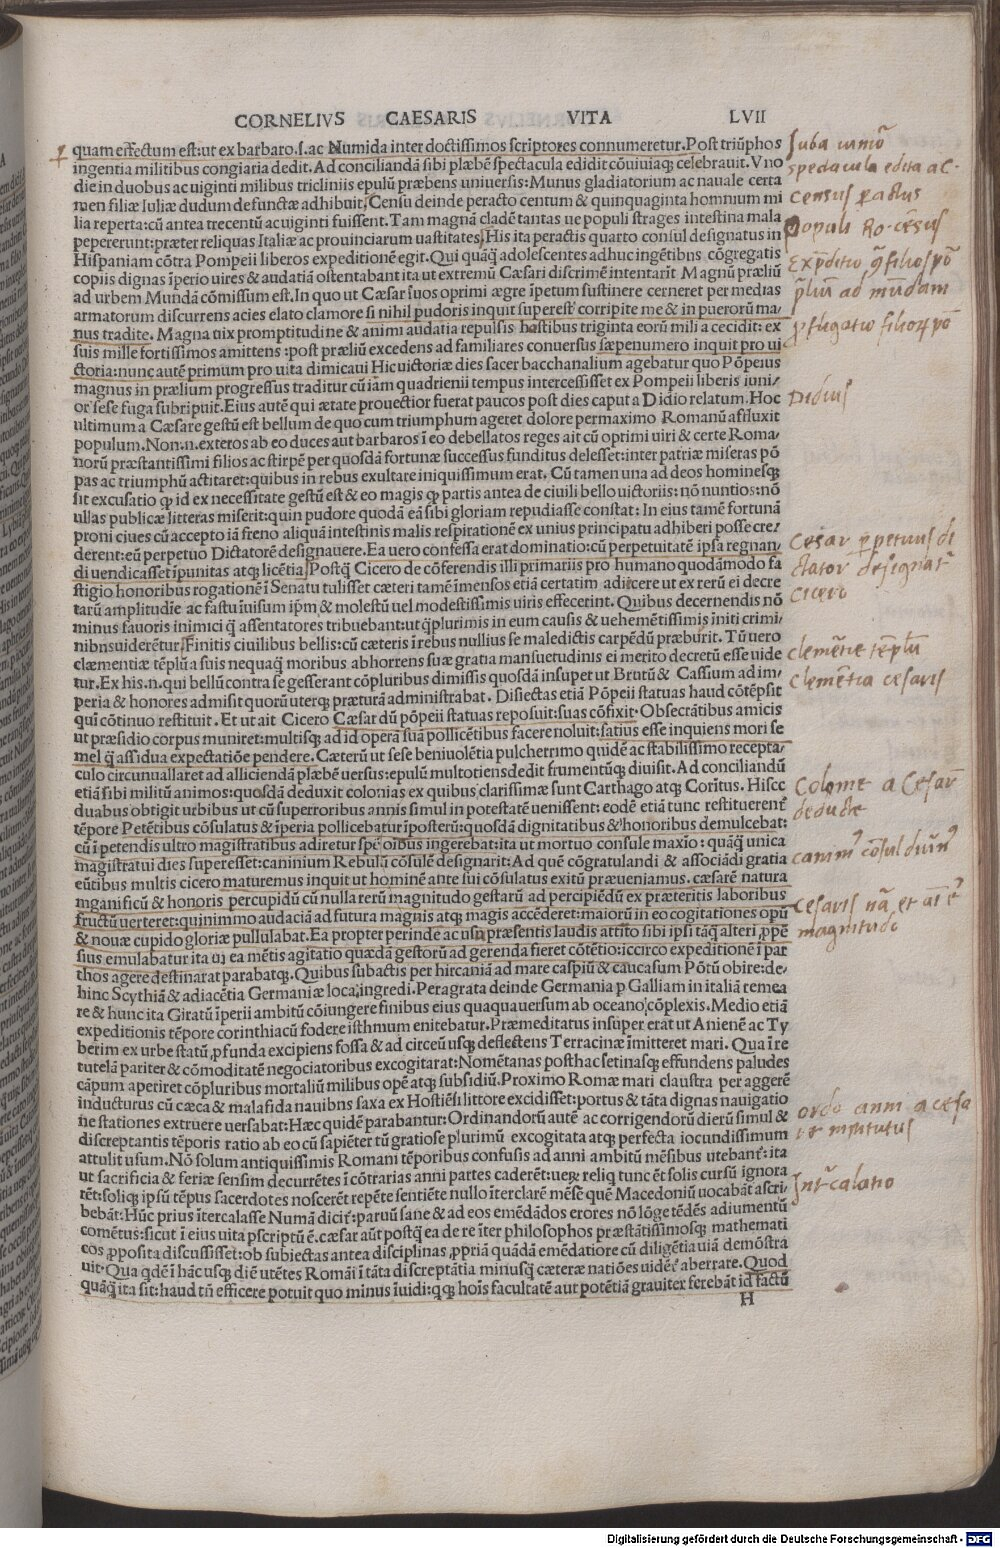 CORNELIVS CAESARIS VITA LVII
quam effectum est: ut ex barbaro .s. ac Numida inter doctissimos scriptores connumeretur. Post triũphos
ingentia militibus congiaria dedit. Ad conciliandã sibi plæbẽ spectacula edidit cõuiuiaq; celebrauit. V no
die in duobus ac uiginti milibus tricliniis epulũ præbens uniuersis: Munus gladiatorium ac nauale certa
men filiæ Iuliæ dudum defunctæ adhibuit. Censu deinde peracto centum & quinquaginta hominum mi
lia reperta: cũ antea trecentũ ac uiginti fuissent. Tam magnã cladẽ tantas ue populi strages intestina mala
pepererunt: præter reliquas Italiæ ac prouinciarum uastitates. His ita peractis quarto consul designatus in
Hispaniam cõtra Pompeii liberos expeditionẽ egit. Qui quãq̃ adolescentes adhuc ingẽtibus cõgregatis
copiis dignas ĩperio uires & audatiã ostentabant ita ut extremũ Cæsari discrimẽ intentarĩt Magnũ præliũ
ad urbem Mundã cõmissum est. In quo ut Cæsar suos oprimi ægre ĩpetum sustinere cerneret per medias
armatorum discurrens acies elato clamore si nihil pudoris inquit superest corripite me & in puerorũ ma/
nus tradite. Magna uix promptitudine & animi audatia repulsis hostibus triginta eorũ milia cecidit: ex
suis mille fortissimos amittens: post præliũ excedens ad familiares conuersus sæpenumero inquit pro ui
ctoria: nunc autẽ primum pro uita dimicaui Hic uictoriæ dies sacer bacchanalium agebatur quo Põpeius
magnus in prælium progressus traditur cũ iam quadrienii tempus intercessisset ex Pompeii liberis iuni/
or sese fuga subripuit. Eius autẽ qui ætate prouectior fuerat paucos post dies caput a Didio relatum. Hoc
ultimum a Cæsare gestũ est bellum de quo cum triumphum ageret dolore permaximo Romanũ affluxit
populum. Non .n. exteros ab eo duces aut barbaros ĩ eo debellatos reges ait cũ oprimi uiri & certe Roma/
norũ præstantissimi filios ac stirpẽ per quosdã fortunæ successus funditus delesset: inter patriæ miseras põ
pas ac triumphũ actitaret: quibus in rebus exultare iniquissimum erat. Cũ tamen una ad deos hominesq;
sit excusatio q̃ id ex necessitate gestũ est & eo magis q̃ partis antea de ciuili bello uictoriis: nõ nuntios: nõ
ullas publicæ litteras miserit: quin pudore quodã eã sibi gloriam repudiasse constat: In eius tamẽ fortunã
proni ciues cũ accepto iã freno aliquã intestinis malis respirationẽ ex unius principatu adhiberi posse cre/
derent: eũ perpetuo Dictatorẽ designauere. Ea uero confessa erat dominatio: cũ perpetuitatẽ ipsa regnan/
di uendicasset ĩpunitas atq; licẽtia. Postq̃ Cicero de cõferendis illi primariis pro humano quodãmodo fa
stigio honoribus rogationẽ ĩ Senatu tulisset cæteri tamẽ ĩmensos etiã certatim adiicere ut ex rerũ ei decre
tarũ amplitudĩe ac fastu ĩuisum ip̃m & molestũ uel modestissimis uiris effecerint. Quibus decernendis nõ
minus fauoris inimici q̃ assentatores tribuebant: ut q̃plurimis in eum causis & uehemẽtissimis initi crimi/
nibus uiderẽtur. Finitis ciuilibus bellis: cũ cæteris ĩ rebus nullius se maledictis carpẽdũ præburit. Tũ uero
clæmentiæ tẽplũ a suis nequaq̃ moribus abhorrens suæ gratia mansuetudinis ei merito decretũ esse uide
tur. Ex his .n. qui bellũ contra se gesserant cõpluribus dimissis quosdã insuper ut Brutũ & Cassium ad im/
peria & honores admisit quorũ uterq; præturã administrabat. Disiectas etiã Põpeii statuas haud cõtẽpsit
qui cõtinuo restituit. Et ut ait Cicero Cæsar dũ põpeii statuas reposuit: suas cõfixit. Obsecrãtibus amicis
ut præsidio corpus muniret: multisq; ad id operã suã pollicẽtibus facere noluit: satius esse inquiens mori se
mel q̃ assidua expectatiõe pendere. Cæterũ ut sese beniuolẽtia pulcherrimo quidẽ ac stabilissimo recepta/
culo circunuallaret ad alliciendã plæbẽ uersus: epulũ multotiens dedit frumentũq; diuisit. Ad conciliandũ
etiã sibi militũ animos: quosdã deduxit colonias ex quibus clarissimæ sunt Carthago atq; Corĩtus. Hisce
duabus obtigit urbibus ut cũ superroribus annis simul in potestatẽ uenissent: eodẽ etiã tunc restituerent̃
tẽpore Petẽtibus cõsulatus & ĩperia pollicebatur ĩposterũ: quosdã dignitatibus & honoribus demulcebat:
cũ ĩ petendis ultro magistratibus adiretur spẽ oĩbus ingerebat: ita ut mortuo consule maxĩo: quãq̃ unica
magistratui dies superesset: caninium Rebulũ cõsulẽ designarit: Ad quẽ cõgratulandi & associãdi gratia
eũtibus multis cicero maturemus inquit ut hominẽ ante sui cõsulatus exitũ præueniamus. cæsarẽ natura
mganificũ & honoris percupidũ cũ nulla rerũ magnitudo gestarũ ad percipiẽdũ ex præteritis laboribus
fructũ uerteret: quinimmo audaciã ad futura magnis atq; magis accẽderet: maiorũ in eo cogitationes opũ
& nouæ cupido gloriæ pullulabat. Ea propter perinde ac usu præsentis laudis attrito sibi ipsi tãq̃ alteri p̱pẽ
sius emulabatur ita ut ea mẽtis agitatio quædã gestorũ ad gerenda fieret cõtẽtio: iccirco expeditionẽ ĩ par
thos agere destinarat parabatq;. Quibus subactis per hircaniã ad mare caspiũ & caucasum Põtũ obire: de/
hinc Scythiã & adiacẽtia Germaniæ loca: ingredi. Peragrata deinde Germania p Galliam in italiã remea
re & hunc ita Giratũ ĩperii ambitũ cõiungere finibus eius quaqua uersum ab oceano cõplexis. Medio etiã
expeditionis tẽpore corinthiacũ fodere isthmum enitebatur. Præmeditatus insuper erat ut Anienẽ ac Ty
berim ex urbe statũ p̱funda excipiens fossa & ad circeũ usq; deflectens Terracinæ ĩmitteret mari. Qua ĩ re
tutelã pariter & cõmoditatẽ negociatoribus excogitarat: Nomẽtanas posthac setinasq; effundens paludes
cãpum aperiret cõpluribus mortaliũ milibus opẽ atq; subsidiũ. Proximo Romæ mari claustra per aggerẽ
inducturus cũ cæca & malafida nauibus saxa ex Hostiẽsi littore excidisset: portus & tãta dignas nauigatio
ne stationes extruere uersabat: Hæc quidẽ parabantur: Ordinandorũ autẽ ac corrigendorũ dierũ simul &
discreptantis tẽporis ratio ab eo cũ sapiẽter tũ gratiose plurimũ excogitata atq; perfecta iocundissimum
attulit usum. Nõ solum antiquissimis Romani tẽporibus confusis ad anni ambitũ mẽsibus utebant̃: ita
ut sacrificia & feriæ sensim decurrẽtes ĩ cõtrarias anni partes caderẽt: ueɽ reliq tunc ẽt solis cursũ ignora
rẽt: soliq; ipsũ tẽpus sacerdotes noscerẽt repẽte sentiẽte nullo ĩterclarẽ mẽsẽ quẽ Macedoniũ uocabãt ascri/
bebãt: Hũc prius ĩtercalasse Numã dicit̃: paruũ sane & ad eos emẽdãdos erores nõ lõge tẽdẽs adiumentũ
comẽtus: sicut ĩ eius uita p̱scriptũ ẽ. cæsar aũt postq̃ ea de re ĩter philosophos præstãtissimosq; mathemati
cos p̱posita discussisset: ob subiectas antea disciplinas p̱priã quãdã emẽdatiore cũ diligẽtia uiã demõstra
uit. Qua q̃dẽ ĩ hãc usq; diẽ utẽtes Romãi ĩ tãta discreptãtia minusq̃ cæteræ natiões uidẽt̃ aberrare. Quod
quãq̃ ita sit: haud tñ efficere potuit quo minus ĩuidi: q̃q; hoĩs facultatẽ aut potẽtiã grauiter ferebãt id factũ
H
Juba iunior
spectacula edita a C.
census peractus
populi Ro. cẽsus
Expeditio
p̃liũ ad mũdam
Didius
Cesar p̱petuus di
ctator designat̃
Cicero
clemẽtie tẽplũ
clemẽtia cesaris
Colonie a Cesare
deducte
magnitudo
ordo anni a cesa
re institutus
Intercalatio